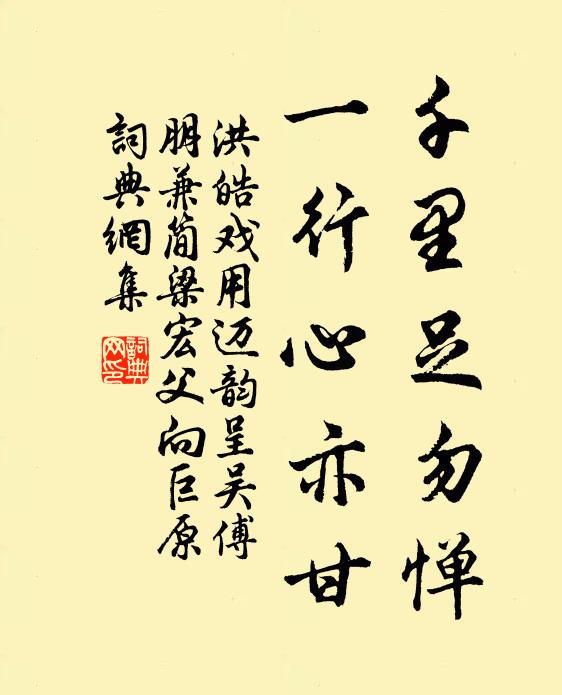 千里足勿惮
一行心亦甘
洪皓戏用迈韵呈吴傅
朋兼简梁宏父向巨原
詞典網集
詞典
网印